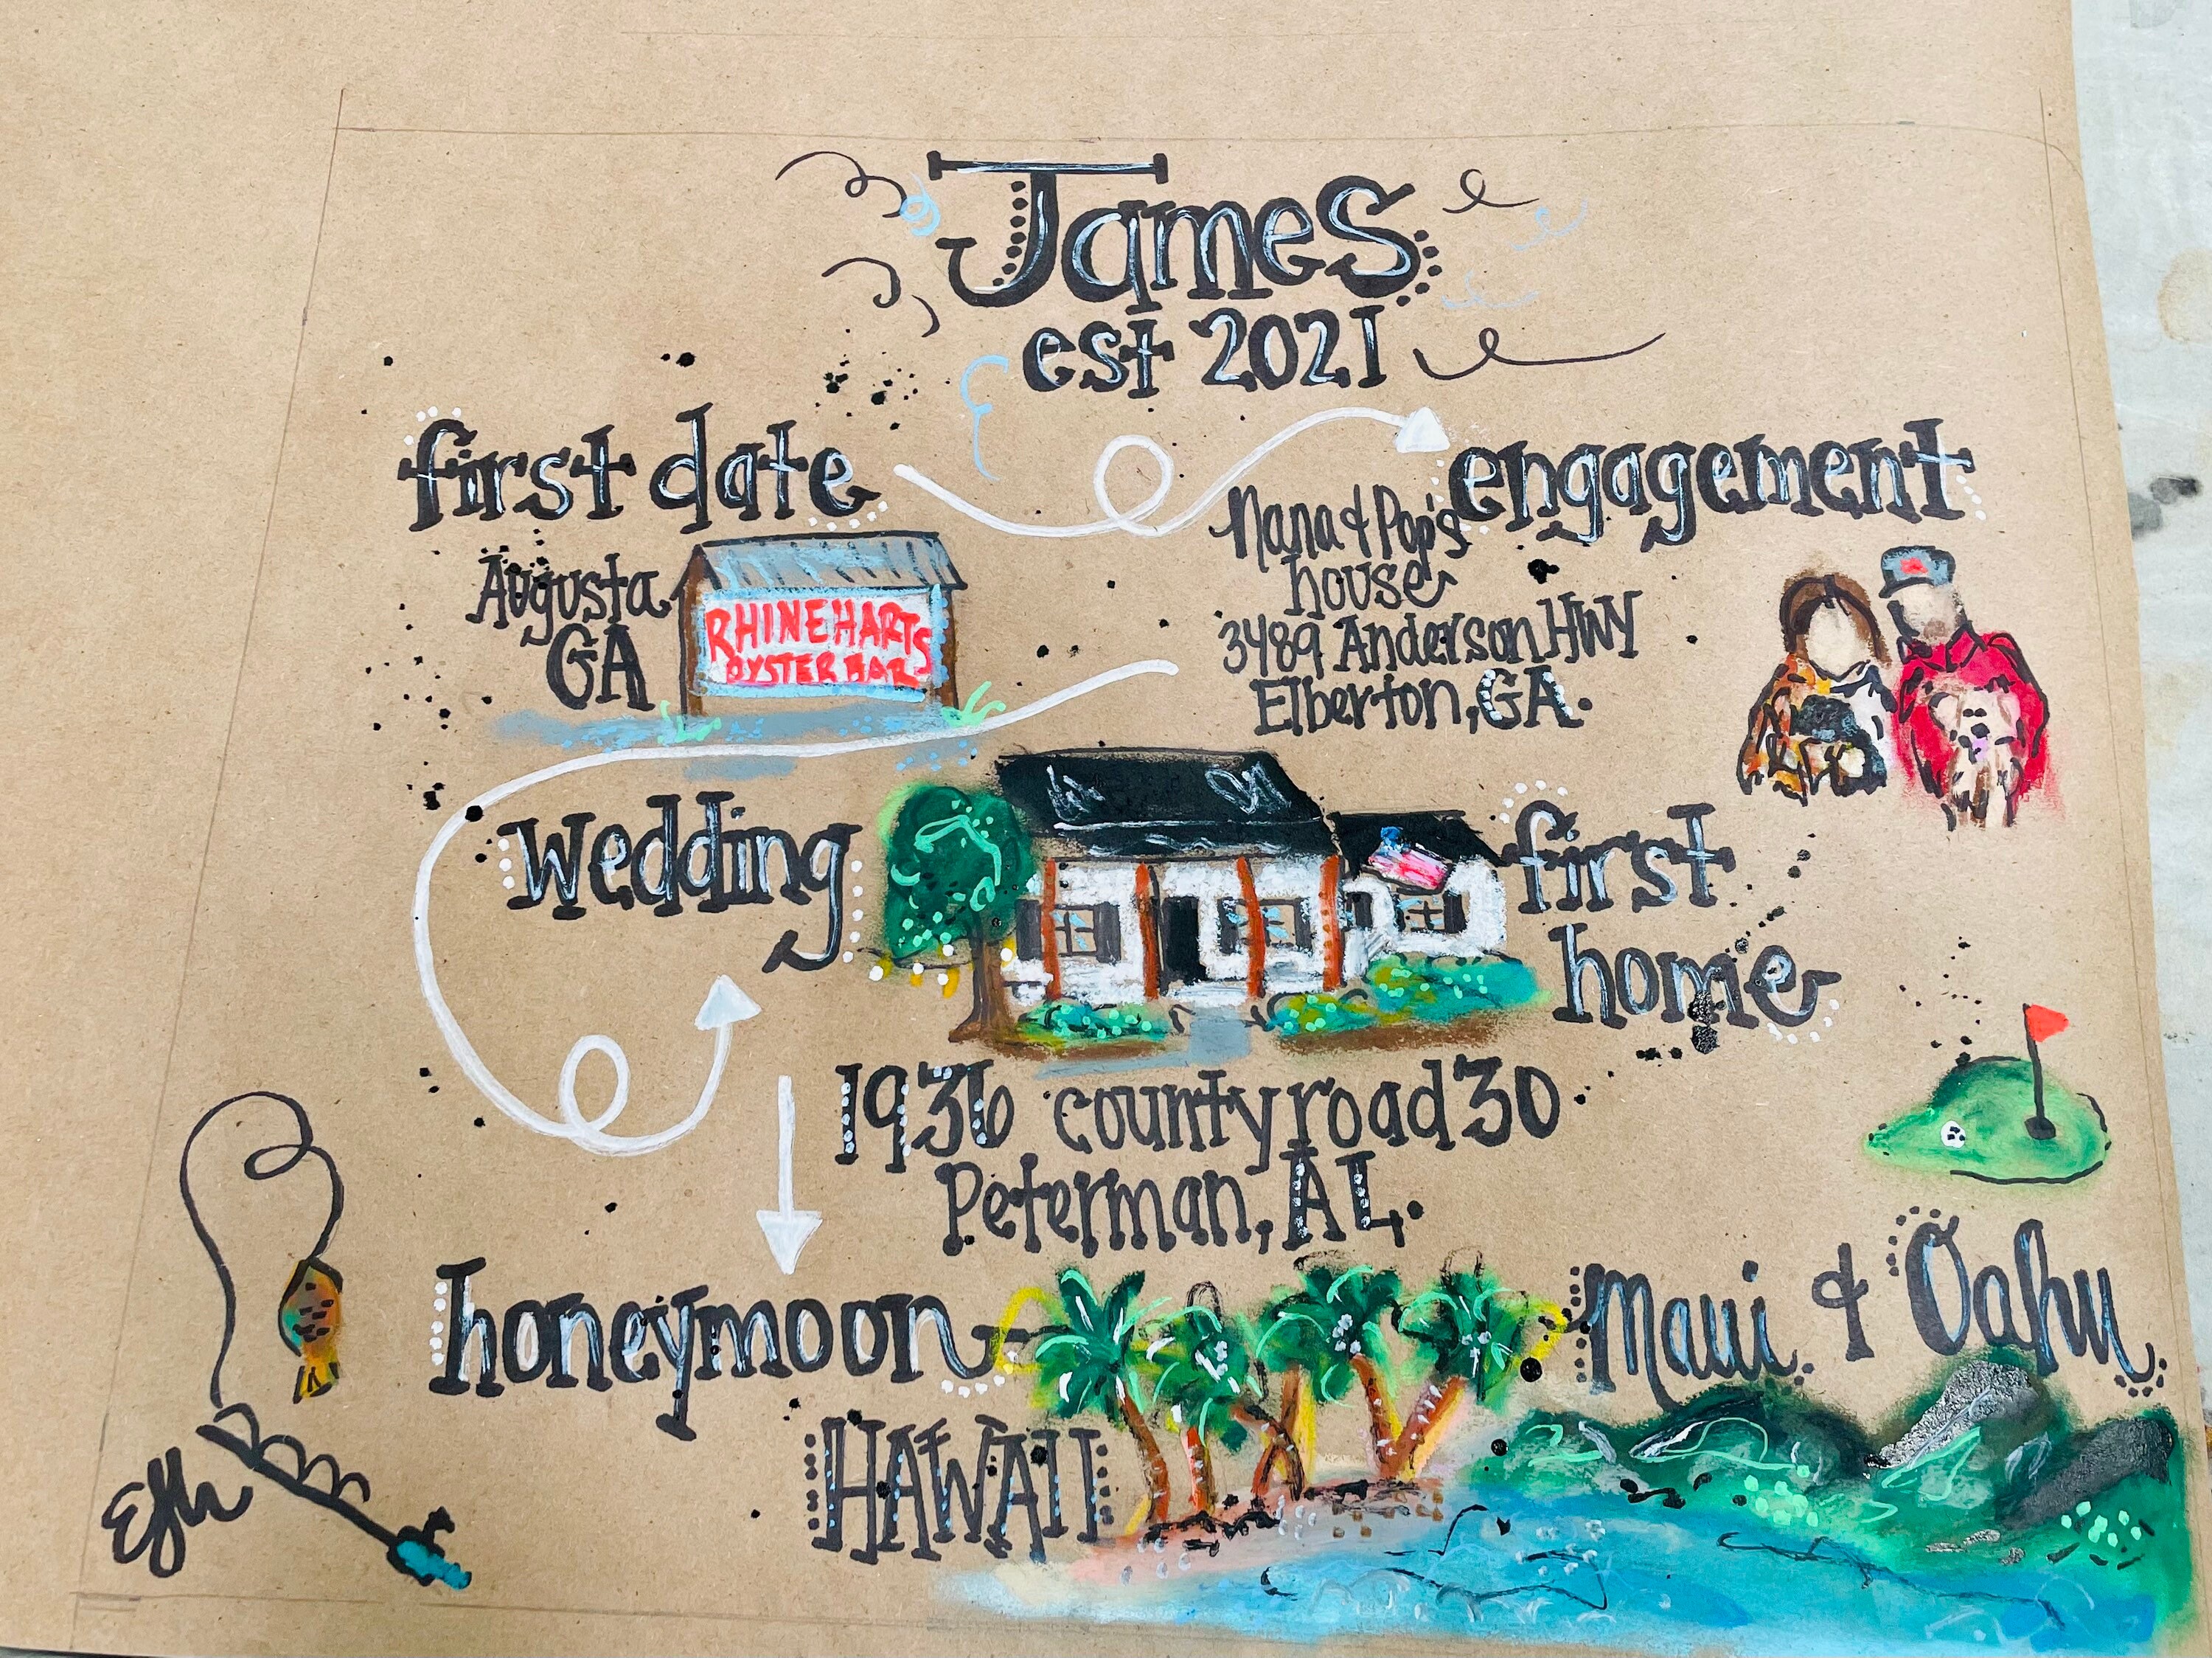 James
est 2021
first date
engagement
Augusta
GA
RHINEHARTS
OYSTER BAR
Nana & Pop's
house
3489 Anderson HWY
Elberton, GA.
wedding
first
home
1936 county road 30
Peterman, AL.
honeymoon
HAWAII
Maui & Oahu